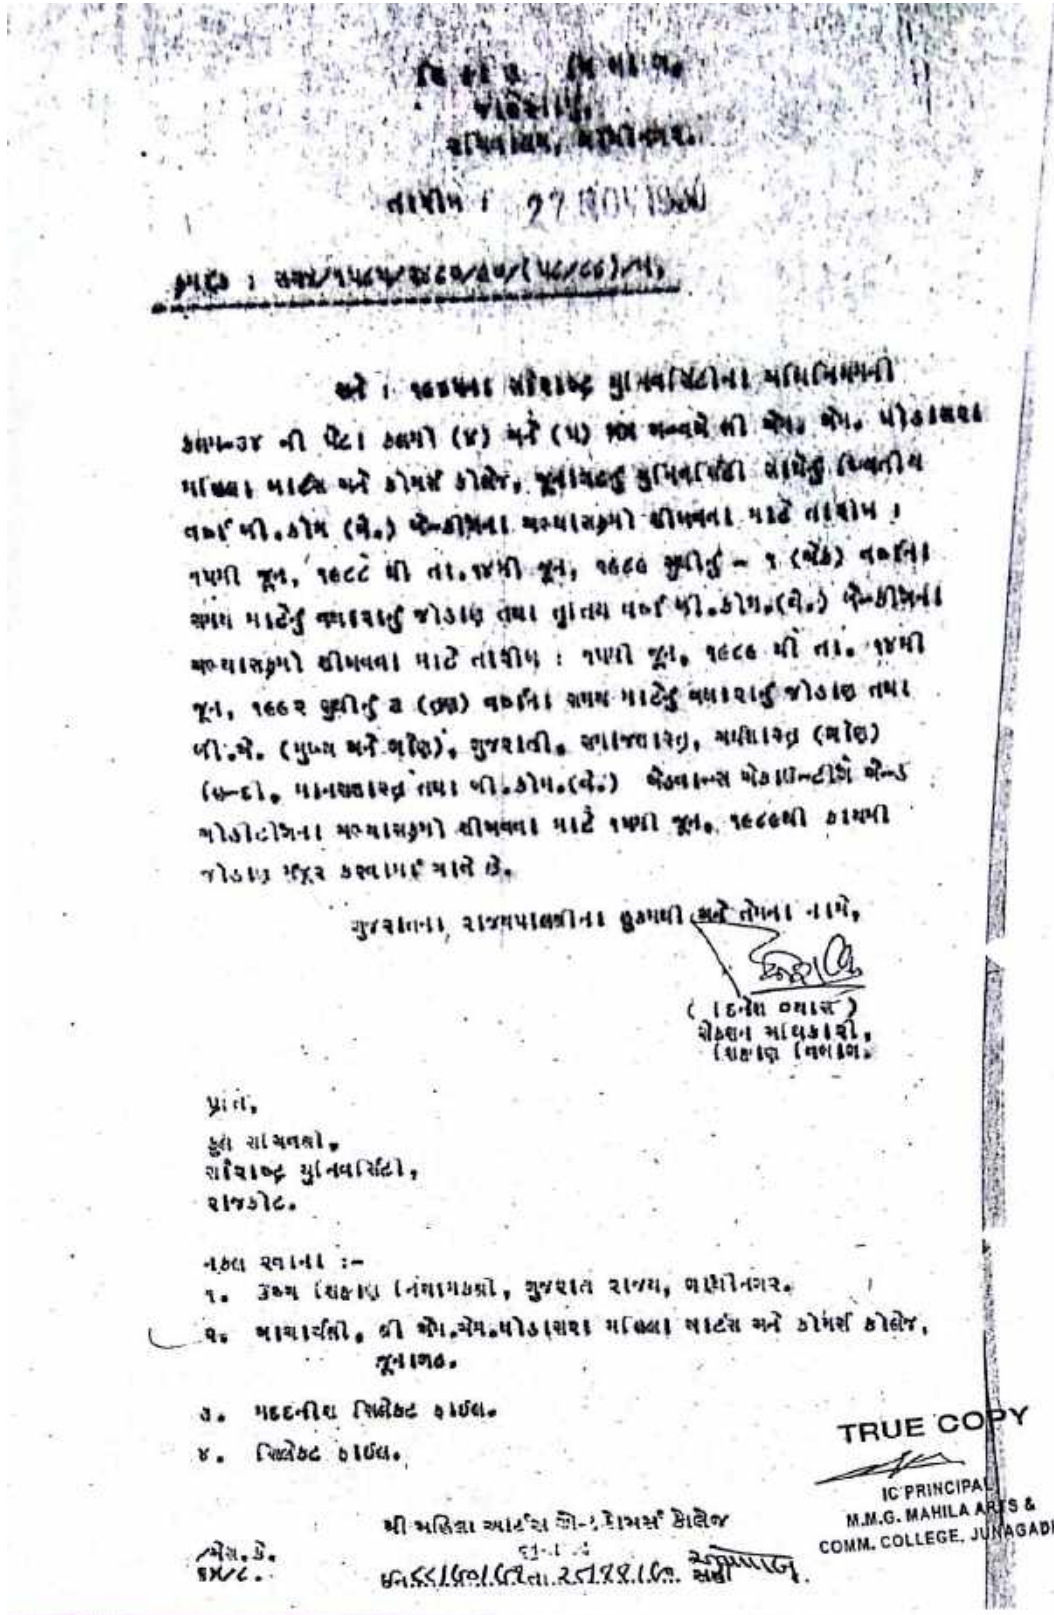 શિક્ષણ વિભાગ,
સચિવાલય, ગાંધીનગર.
તારીખ : 27 NOV 1990
ક્રમાંક :
આથી : ૧૯૬૫ના સૌરાષ્ટ્ર યુનિવર્સિટીના અધિનિયમની
કલમ-૩૪ ની પેટા કલમો (૪) અને (૫) એમ. એમ.
મહિલા આર્ટસ અને કોમર્સ કોલેજ, જૂનાગઢનું યુનિવર્સિટી સાથેનું દ્વિતીય
વર્ષ બી.કોમ (વે.) બેન્કીંગના અભ્યાસક્રમો શીખવવા માટે તારીખ :
૧૫મી જૂન, ૧૯૮૮ થી તા.૧૪મી જૂન, ૧૯૮૯ સુધીનું - ૧ (એક) વર્ષના
સમય માટેનું વધારાનું જોડાણ તથા તૃતિય વર્ષ બી.કોમ.(વે.) બેન્કીંગના
અભ્યાસક્રમો શીખવવા માટે તારીખ : ૧૫મી જૂન, ૧૯૮૯ થી તા. ૧૪મી
જૂન, ૧૯૯૨ સુધીનું ૩ (ત્રણ) વર્ષના સમય માટેનું વધારાનું જોડાણ તથા
બી.એ. (મુખ્ય અને ગૌણ), ગુજરાતી, સમાજશાસ્ત્ર, અર્થશાસ્ત્ર (ગૌણ)
હિન્દી, માનસશાસ્ત્ર તથા બી.કોમ.(વે.) એડવાન્સ એકાઉન્ટીંગ એન્ડ
ઓડીટીંગના અભ્યાસક્રમો શીખવવા માટે ૧૫મી જૂન, ૧૯૮૯થી કાયમી
જોડાણ મંજૂર કરવામાં આવે છે.
ગુજરાતના રાજ્યપાલશ્રીના હુકમથી અને તેમના નામે,
( દિનેશ વ્યાસ )
સેક્શન અધિકારી,
શિક્ષણ વિભાગ.
પ્રતિ,
કુલ સચિવશ્રી,
સૌરાષ્ટ્ર યુનિવર્સિટી,
રાજકોટ.
નકલ રવાના :-
૧. ઉચ્ચ શિક્ષણ નિયામકશ્રી, ગુજરાત રાજ્ય, ગાંધીનગર.
૨. આચાર્યશ્રી, શ્રી એમ.એમ.ઘોડાસરા મહિલા આર્ટસ અને કોમર્સ કોલેજ,
જૂનાગઢ.
૩. મદદનીશ સિલેકટ ફાઈલ.
૪. સિલેકટ ફાઈલ.
TRUE COPY
IC PRINCIPAL
M.M.G. MAHILA ARTS &
COMM. COLLEGE, JUNAGADH
શ્રી મહિલા આર્ટસ એન્ડ કોમર્સ કોલેજ